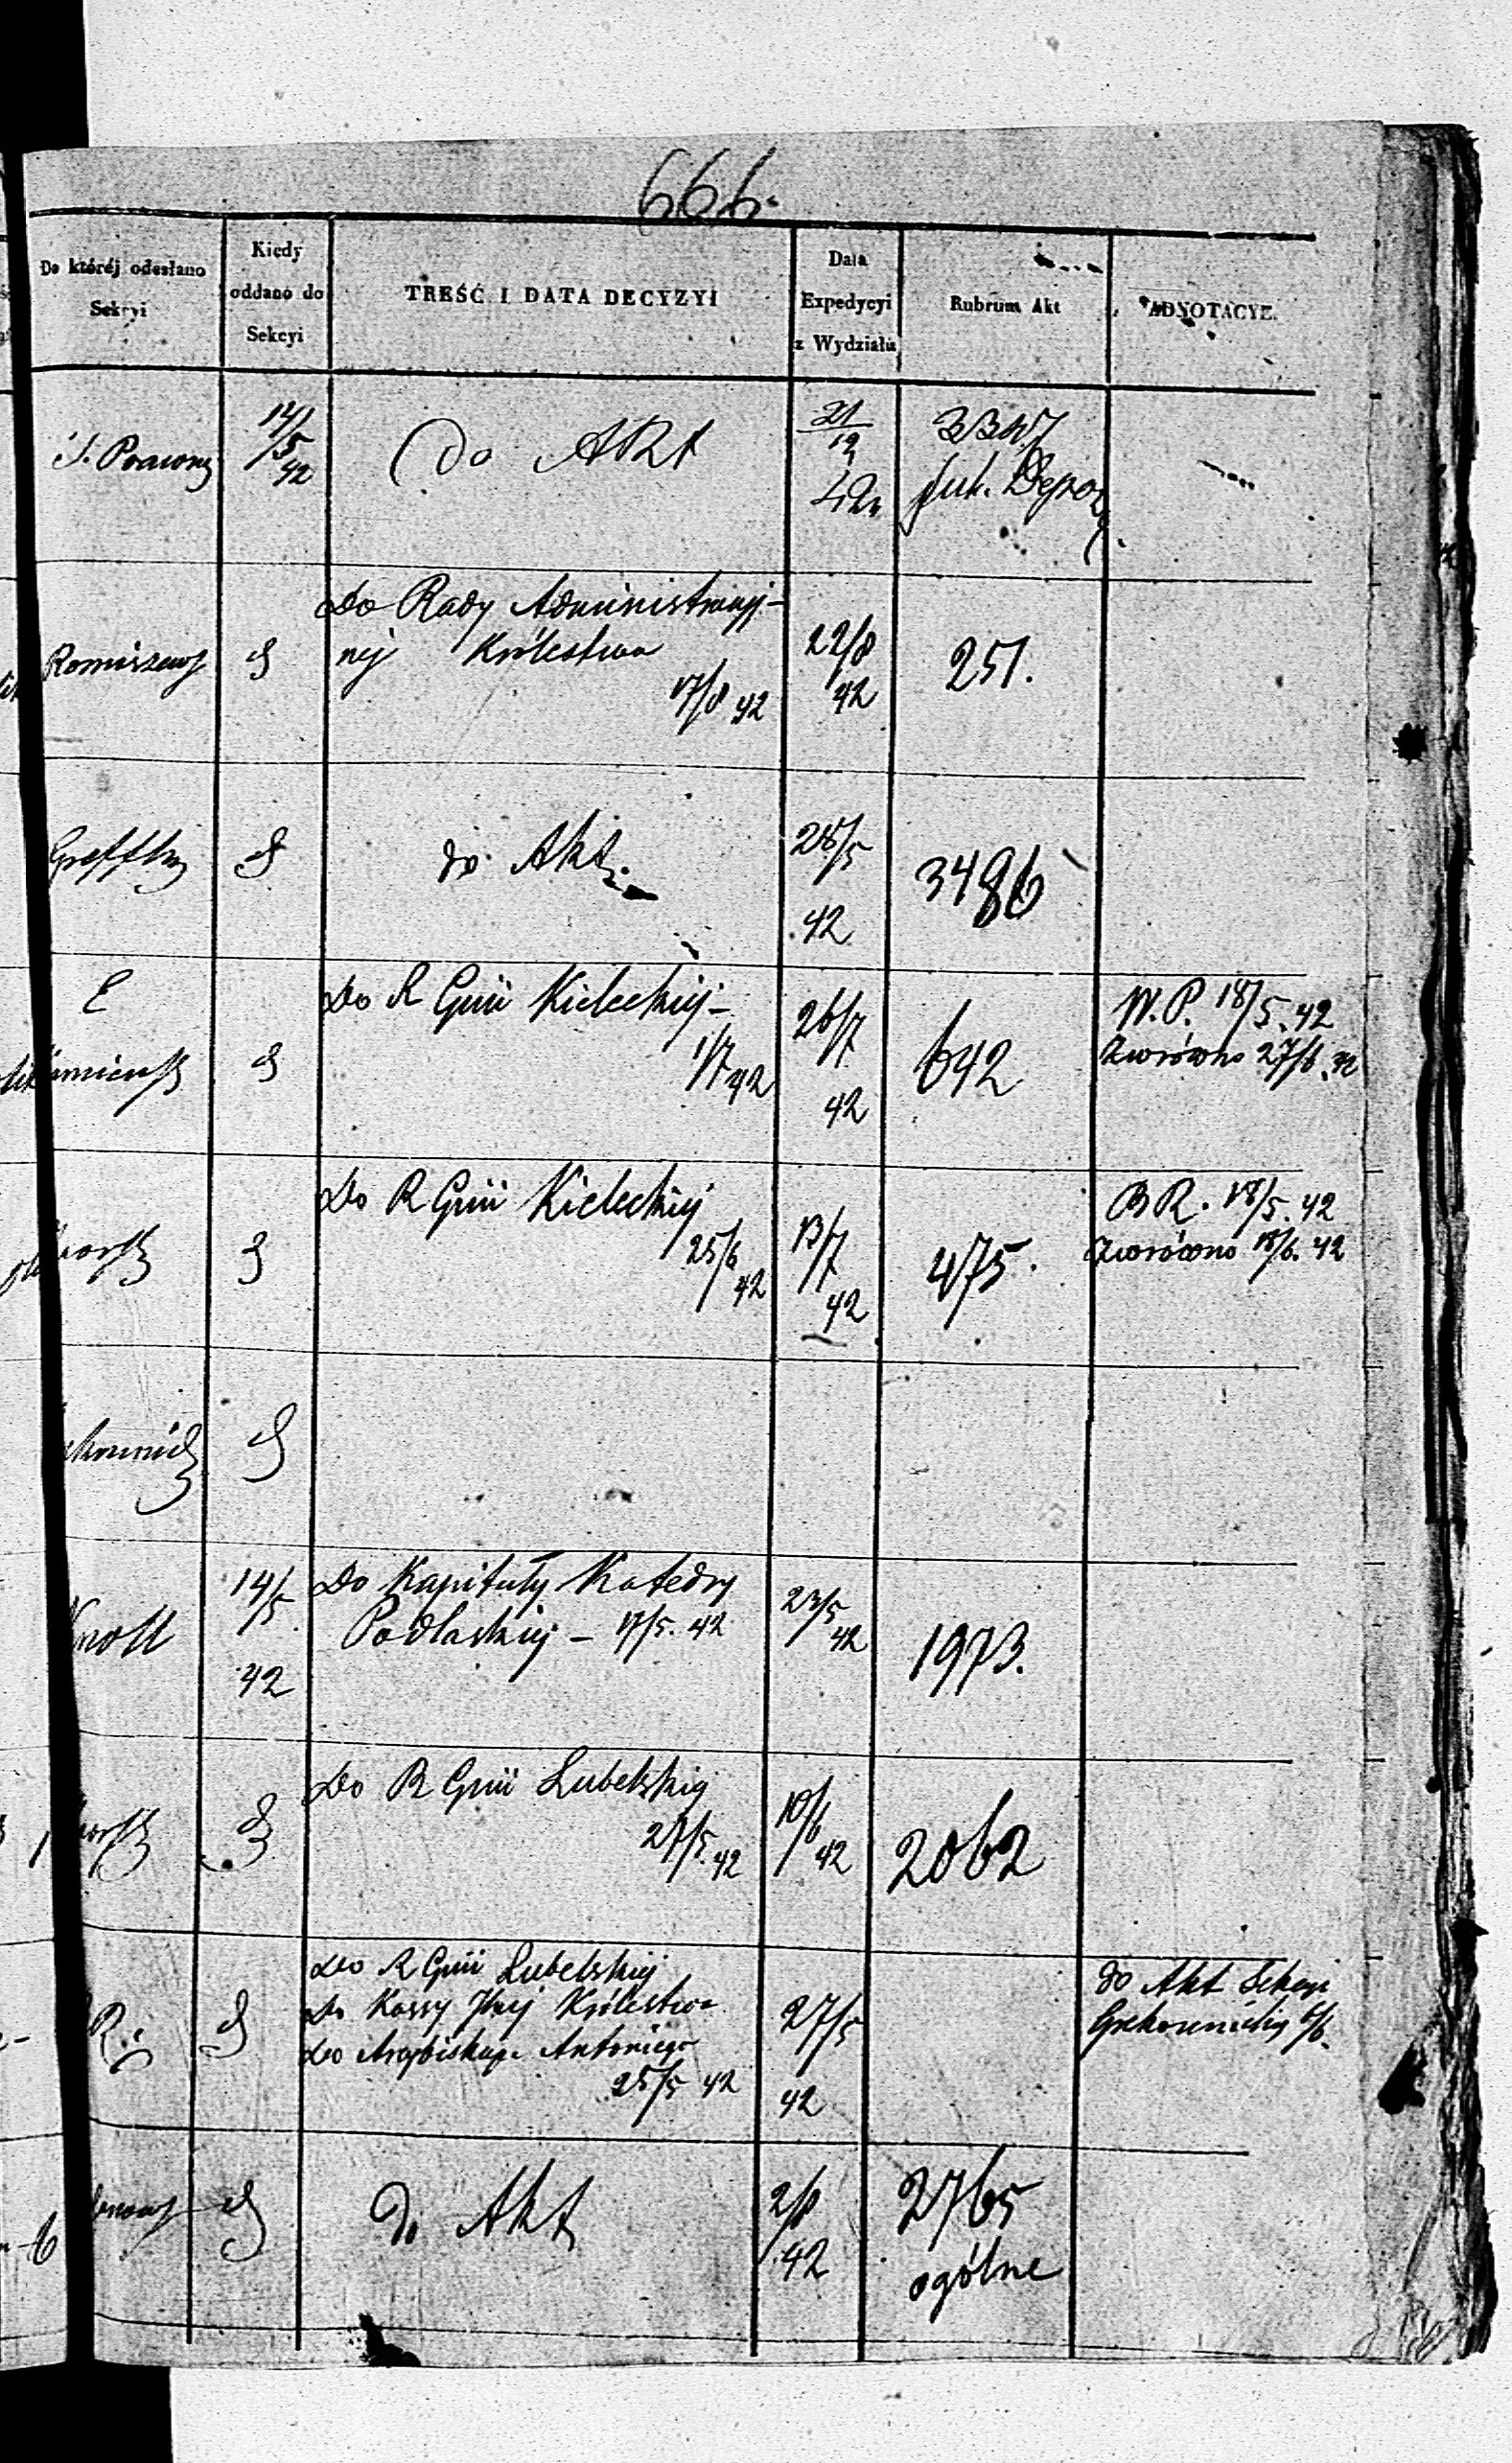 666.
Do któréj odesłano
Sekcyi
Kiedy
oddano do
Sekcyi
TREŚĆ I DATA DECYZYI
Data
Expedycyi
z Wydziału
Rubrum Akt
ADNOTACYE.
14/5
42
Do Akt
21/12
42
Depoz
Do Rady Administracyj-
nej Królestwa
17/8 42
22/8
42
251.
do Akt.
28/5
42
3486
Do R Gnii Kieleckiej
1/7 42
26/7
42
642
W. P. 18/5. 42
Zwrócono 27/6. 42
Do R Gnii Kieleckiej
25/6
42
13/7
42
475.
B R. 18/5. 42
Zwrócono 18/6. 42
14/5
42
Do Kapituły Katedry
Podlaskiej – 17/5. 42
23/5
42
1973.
Do R Gnii Lubelskiej
27/5. 42
10/6
42
2062
R.
Do R Gnii Lubelskiej
Do Kassy Królestwa
Do Arcybiskupa Antoniego
25/5 42
27/5
42
do Akt Sekcyi
do Akt
2/8
42
2765
ogólne